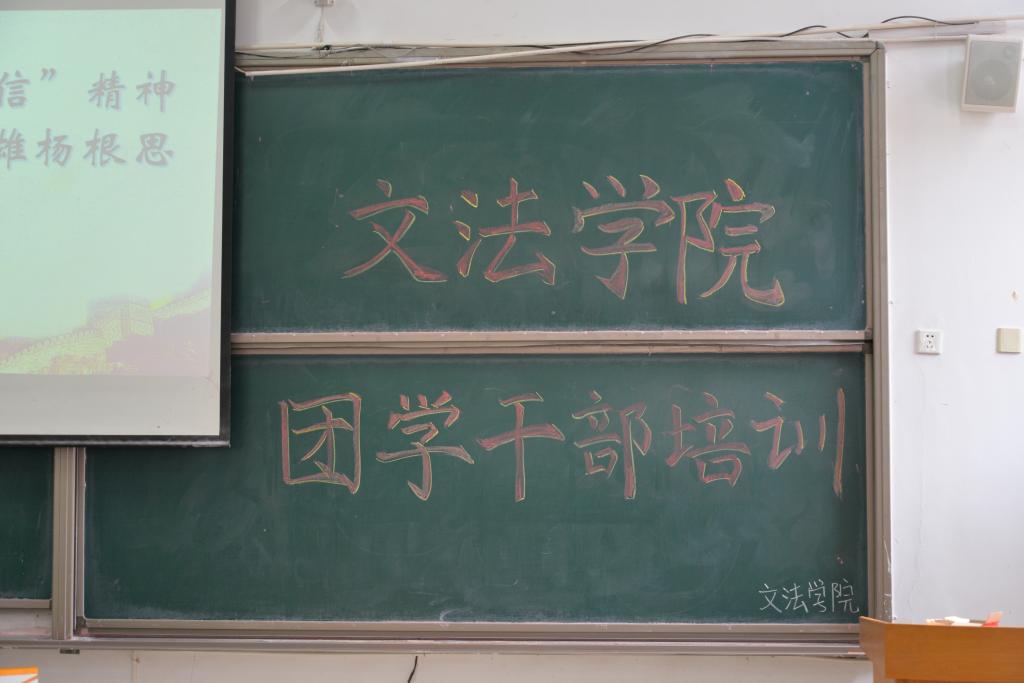 信”精神
雄杨根思
文法学院
团学干部培训
文法学院